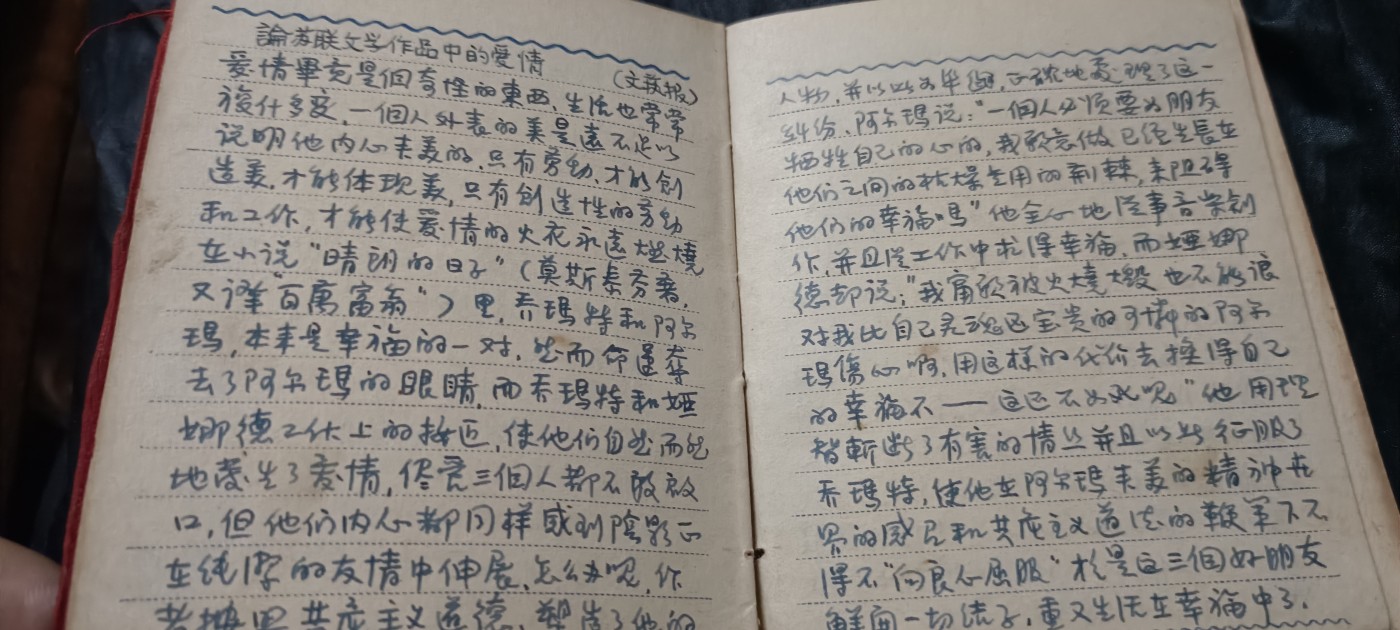 論苏联文学作品中的爱情
(文藝报)
爱情畢竟是個奇怪的東西，生活也常常
複什多变，一個人外表的美是遠不足以
说明他内心美的，只有劳动，才能創
造美，才能体现美，只有創造性的劳动
和工作，才能使爱情的火花永遠燃燒
在小说“晴朗的日子”(莫斯泰芬著，
又譯“百萬富翁”）里，乔瑪特和阿尔
瑪，本来是幸福的一对，然而命運奪
去了阿尔瑪的眼睛，而乔瑪特和娅
娜德工作上的接近，使他们自然而然
地發生了爱情，儘管三個人都不敢啟
口，但他们内心都同样感到陰影正
在纯潔的友情中伸展，怎么办呢，作
共产主义道德，塑造了他的
人物，并以此为準绳，正確地處理了这一
纠纷，阿尔瑪说：“一個人必须要为朋友
牺牲自己的心的，我能忍做已经生長在
他们之间的枯燥无用的荆棘，来阻碍
他们的幸福嗎”他全心地從事音樂創
作，并且從工作中求得幸福，而娅娜
德却说：“我甯願被火燒燬也不能讓
对我比自己灵魂还宝贵的可憐的阿尔
瑪傷心啊，用这样的代价去換得自己
的幸福不——这还不如死呢”他用理
智斬断了有害的情丝并且以此征服了
乔瑪特，使他在阿尔瑪美的精神世
界的感召和共产主义道德的鞭笞下不
得不“向良心屈服”於是这三個好朋友
解開一切结子，重又生活在幸福中了.